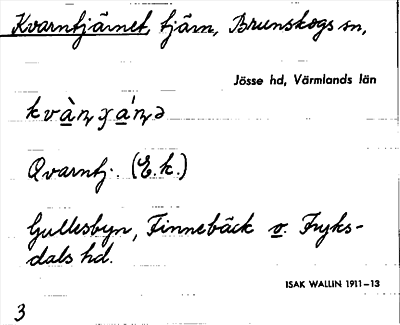 Kvarntjärnet, tjärn, Brunskogs sn,
Jösse hd, Värmlands län
Qvarntj. (E.k.)
Gullesbyn, Finnebäck o. Fryks-
dals hd.
ISAK WALLIN 1911–13
3